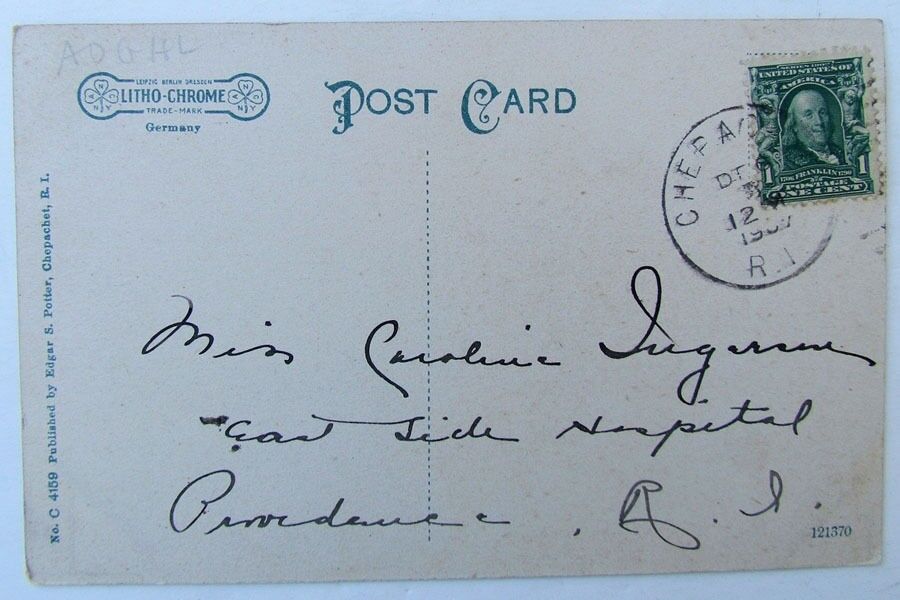 ADGHL
LEIPZIG BERLIN DRESDEN
LITHO-CHROME
TRADE-MARK
Germany
POST CARD
SERIES 1902
UNITED STATES OF
AMERICA
1706 FRANKLIN 1790
POSTAGE
1 1
ONE CENT
CHEPAC
DE
12
R.I.
Miss Caroline Ingerson
East Side Hospital
Providence, R. I.
No. C 4159 Published by Edgar S. Potter, Chepachet, R. I.
121370